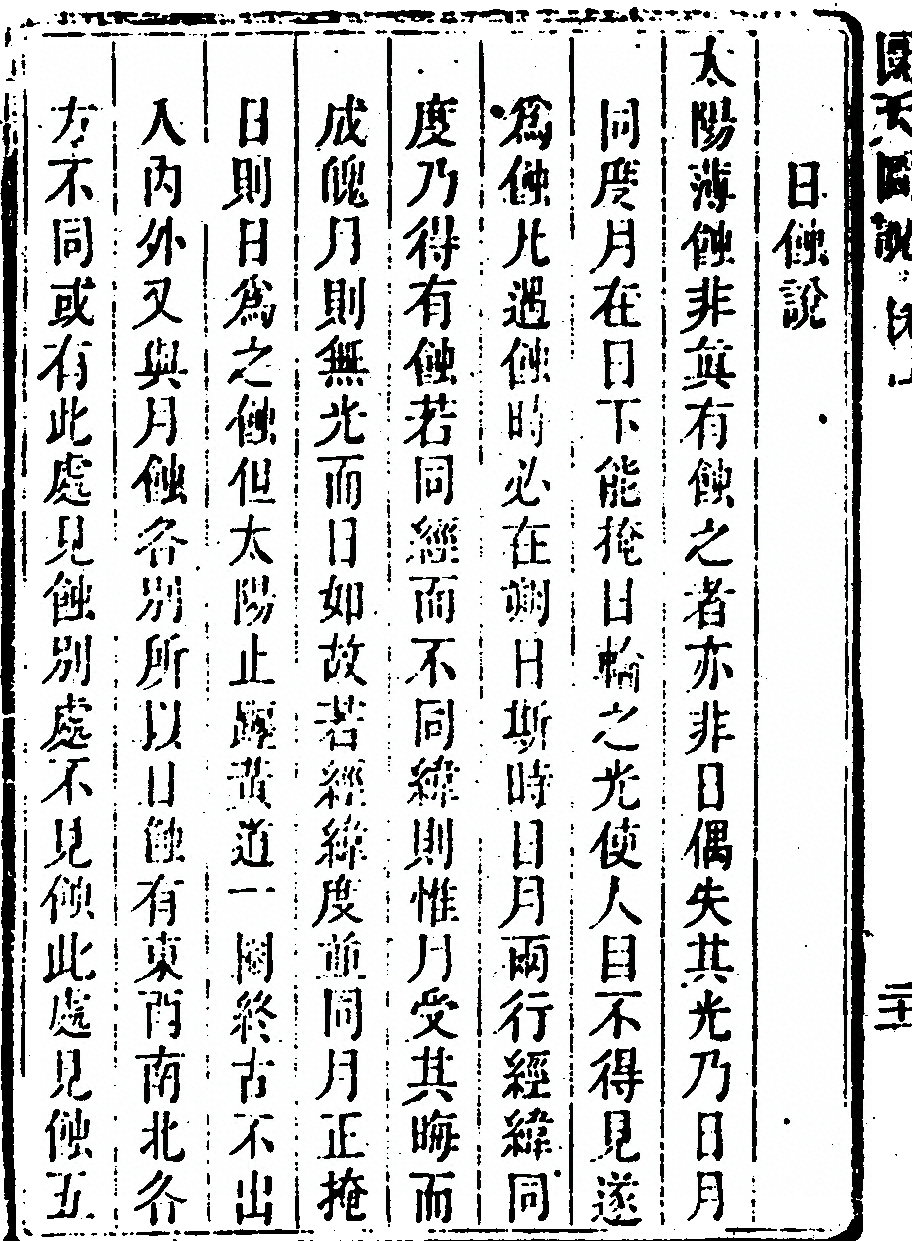 日蝕說
太陽薄蝕非眞有蝕之者亦非日偶失其光乃日月
同度月在日下能掩日輪之光使人目不得見遂
爲蝕凡遇蝕時必在朔日斯時日月兩行經緯同
度乃得有蝕若同經而不同緯則惟月受其晦而
成魄月則無光而日如故若經緯度並同月正掩
日則日爲之蝕但太陽止躔黃道一圈終古不出
入內外又與月蝕各別所以日蝕有東西南北各
方不同或有此處見蝕別處不見倘此處見蝕五